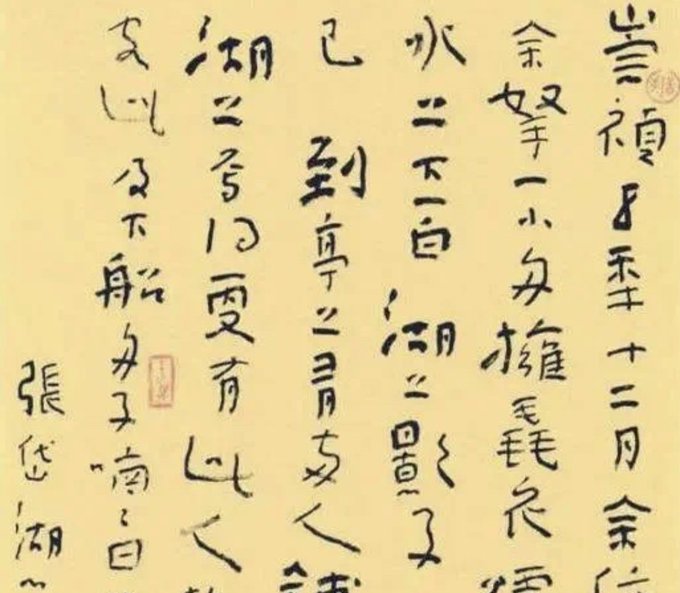 崇禎五年十二月余住
余拏一小舟擁毳衣爐
水上下一白湖上影子
已到亭上有兩人鋪
湖上焉得更有此人
客此及下船舟子喃喃曰
張岱湖心